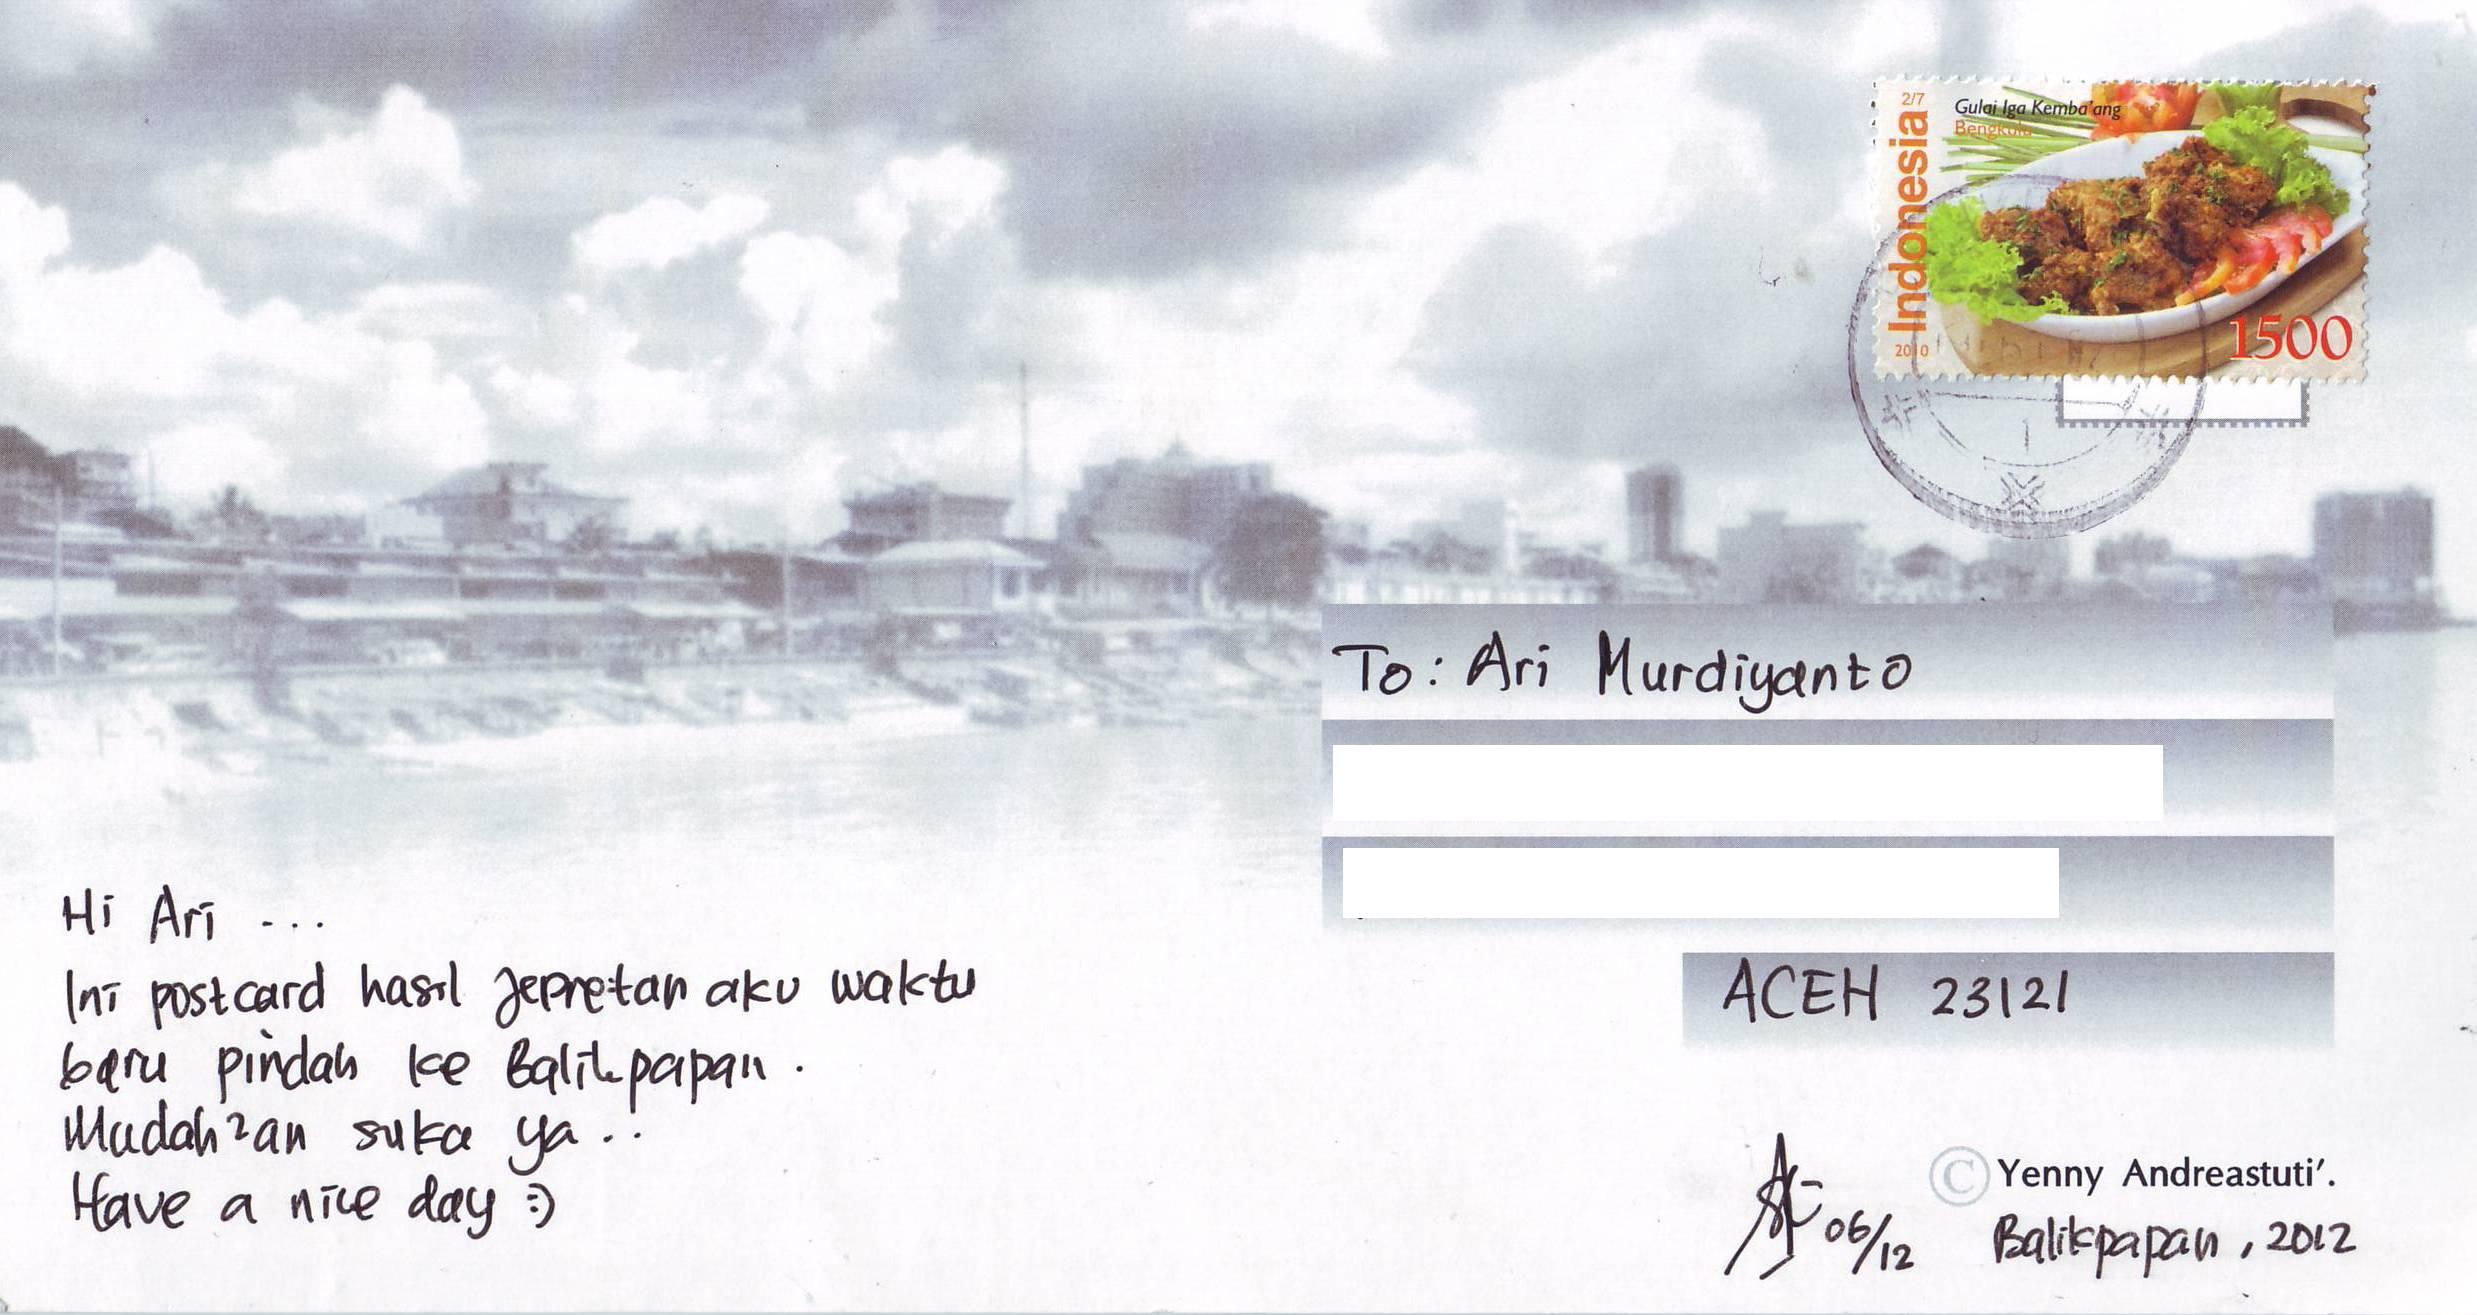 2/7
Gulai Iga Kemba'ang
Bengkulu
Indonesia
2010
1500
1
To: Ari Murdiyanto
ACEH 23121
Hi Ari ...
Ini postcard hasil jepretan aku waktu
baru pindah ke Balikpapan.
Mudah2an suka ya..
Have a nice day :)
06/12
© Yenny Andreastuti'.
Balikpapan, 2012